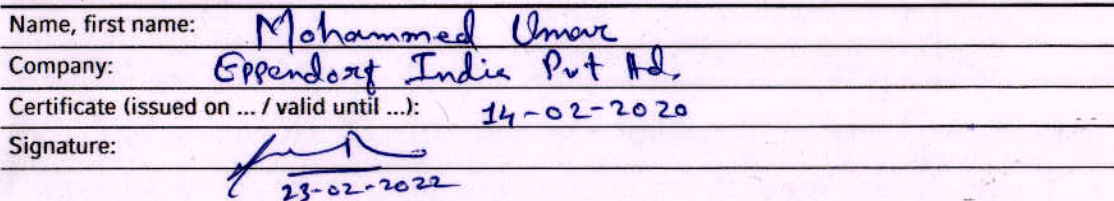 Name, first name: Mohammed Umar
Company: Eppendorf India Pvt Ltd.
Certificate (issued on ... / valid until ...): 14-02-2020
Signature:
23-02-2022